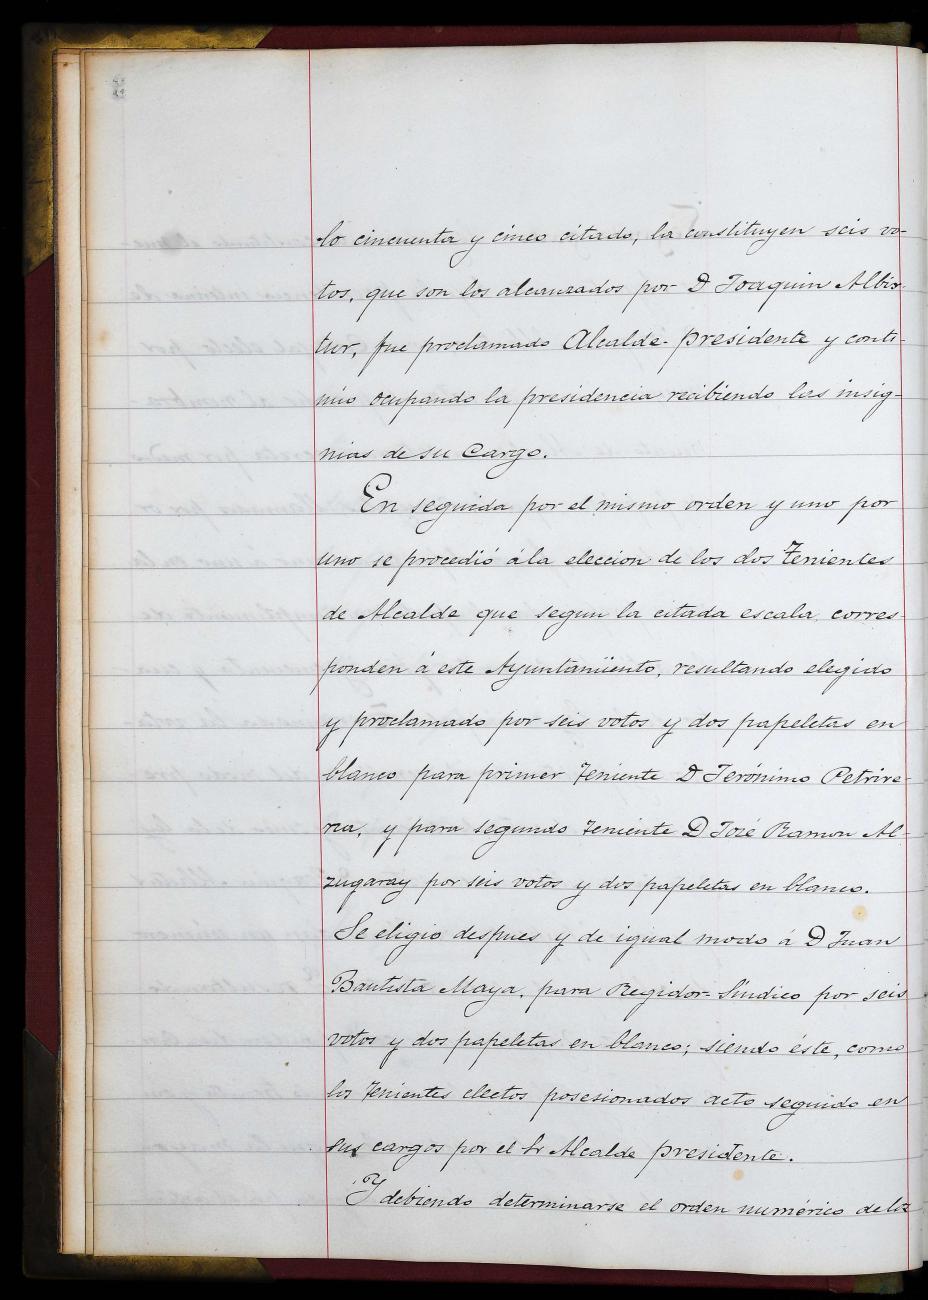 lo cincuenta y cinco citado, la constituyen seis vo-
tos, que son los alcanzados por D Joaquin Albis-
tur, fue proclamado Alcalde-presidente y conti-
nuo ocupando la presidencia recibiendo las insig-
nias de su Cargo.
En seguida por el mismo orden y uno por
uno se procedió á la eleccion de los dos Tenientes
de Alcalde que segun la citada escala corres-
ponden á este Ayuntamiento, resultando elegido
y proclamado por seis votos y dos papeletas en
blanco para primer Teniente D Jerónimo Petrire-
na, y para segundo Teniente D José Ramon Al-
zugaray por seis votos y dos papeletas en blanco.
Se eligio despues y de igual modo á D Juan
Bautista Maya, para Regidor-Síndico por seis
votos y dos papeletas en blanco; siendo éste, como
los Tenientes electos posesionados acto seguido en
sus cargos por el Sr Alcalde presidente.
Y debiendo determinarse el orden numérico de los